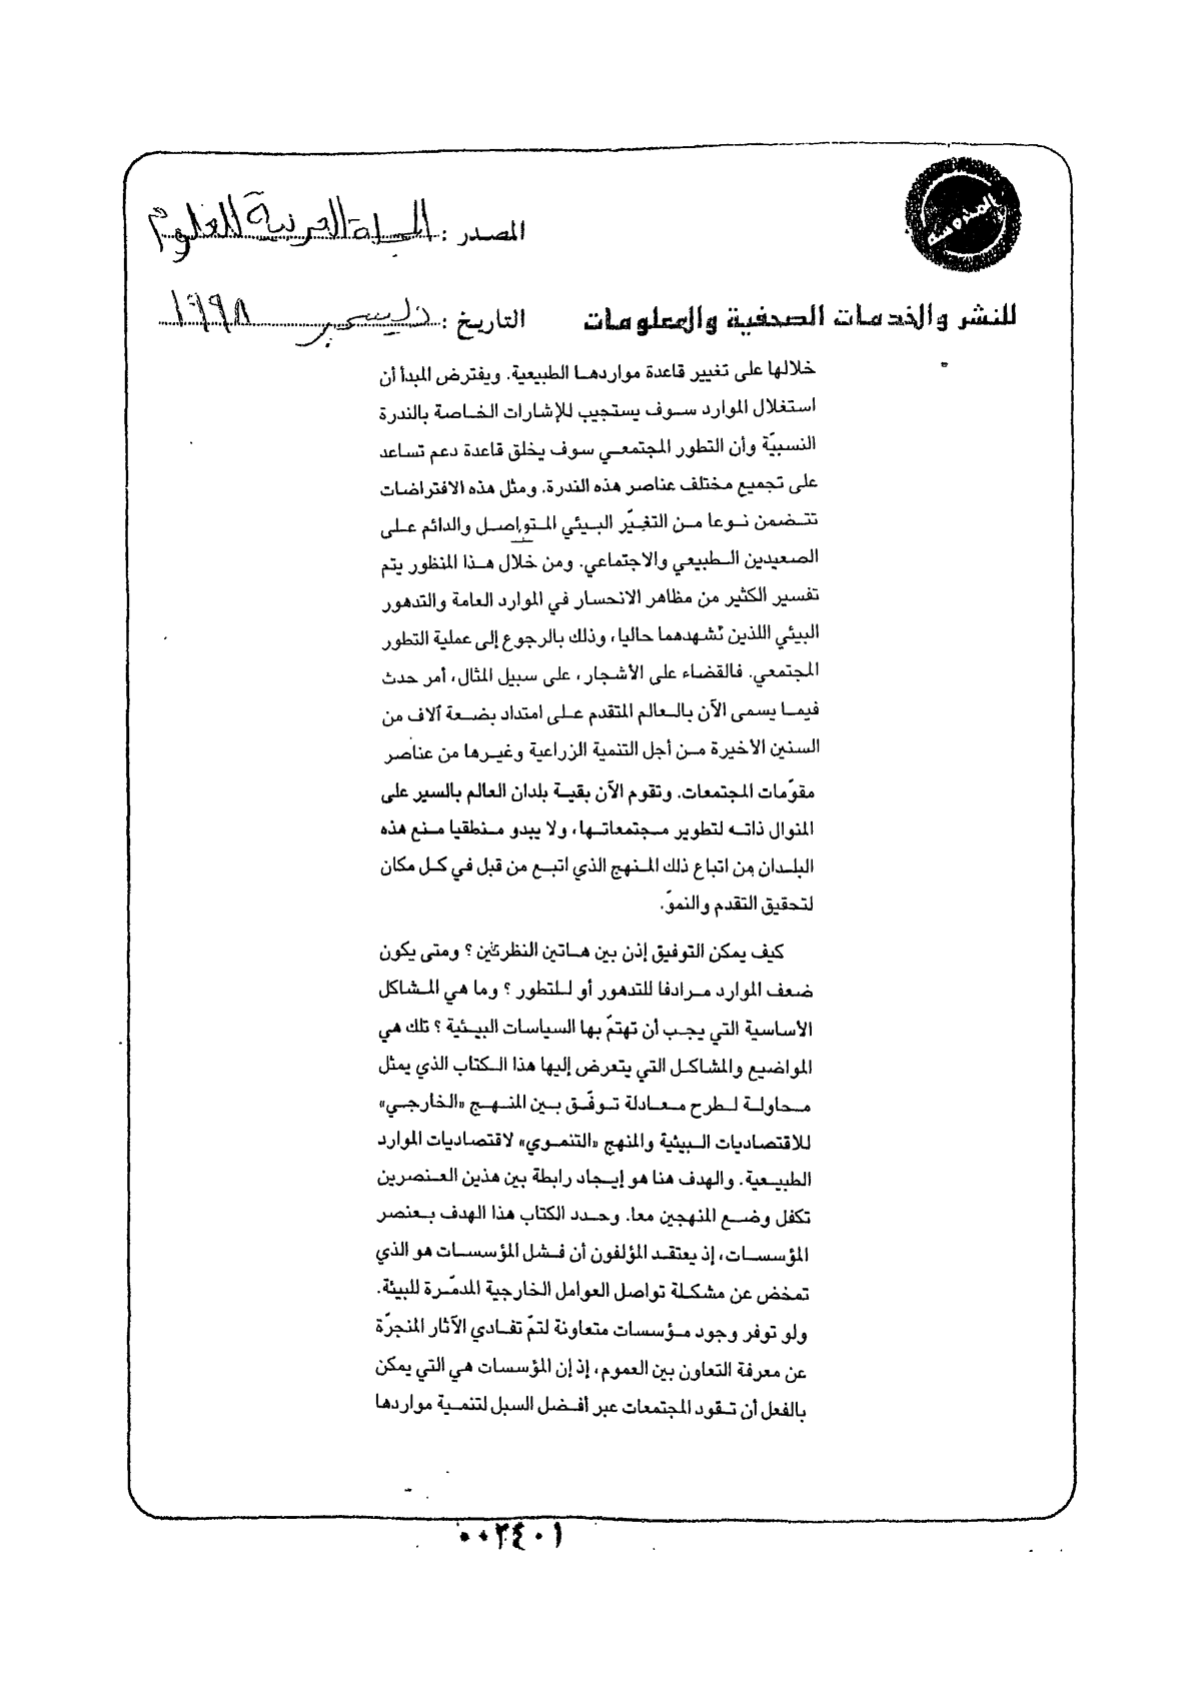 المحروسة
المصدر : المجلة العربية للعلوم
للنشر والخدمات الصحفية والمعلومات
التاريخ : ديسمبر ١٩٩٨
خلالها على تغيير قاعدة مواردهـا الطبيعية. ويفترض المبدأ أن
استغلال الموارد سـوف يستجيب للإشارات الخـاصة بالندرة
النسبيّة وأن التطور المجتمعـي سوف يخلق قاعدة دعم تساعد
على تجميع مختلف عناصر هذه الندرة. ومثل هذه الافتراضات
تتـضمن نـوعا مـن التغيّر البـيئي المتواصل والدائم علـى
الصعيدين الـطبيعي والاجتماعي. ومن خلال هـذا المنظور يتم
تفسير الكثير من مظاهر الانحسار في الموارد العامة والتدهور
البيئي اللذين نشهدهما حاليا، وذلك بالرجوع إلى عملية التطور
المجتمعي. فالقضاء على الأشجار، على سبيل المثال، أمر حدث
فيمـا يسمى الآن بالـعالم المتقدم علـى امتداد بضـعة آلاف من
السنين الأخيرة مـن أجل التنمية الزراعية وغيـرها من عناصر
مقوّمات المجتمعات. وتقوم الآن بقيـة بلدان العالم بالسير على
المنوال ذاتـه لتطوير مـجتمعاتـها، ولا يبدو مـنطقيا مـنع هذه
البلـدان من اتباع ذلك المـنهج الذي اتبـع من قبل في كـل مكان
لتحقيق التقدم والنموّ.
كيف يمكن التوفيق إذن بين هـاتين النظرتين ؟ ومتى يكون
ضعف الموارد مـرادفا للتدهور أو لـلتطور ؟ وما هي المـشاكل
الأساسية التي يجـب أن تهتمّ بها السياسات البيـئية ؟ تلك هي
المواضيع والمشاكـل التي يتعرض إليها هذا الـكتاب الذي يمثل
مـحاولة لـطرح مـعـادلة تـوفّـق بـين المنـهـج «الخارجـي»
للاقتصاديات الـبيئية والمنهج «التنمـوي» لاقتصاديات الموارد
الطبيـعية. والهدف هنا هو إيـجاد رابطة بين هذين العـنصرين
تكفل وضـع المنهجين معا. وحـدد الكتاب هذا الهدف بـعنصر
المؤسسـات، إذ يعتقـد المؤلفون أن فـشل المؤسسـات هو الذي
تمخض عن مشكـلة تواصل العوامل الخارجية المدمّـرة للبيئة.
ولو توفر وجود مـؤسسات متعاونة لتمّ تفادي الآثار المنجرّة
عن معرفة التعاون بين العموم، إذ إن المؤسسات هي التي يمكن
بالفعل أن تـقود المجتمعات عبر أفـضل السبل لتنمـية مواردها
٠٠٢٤٠١